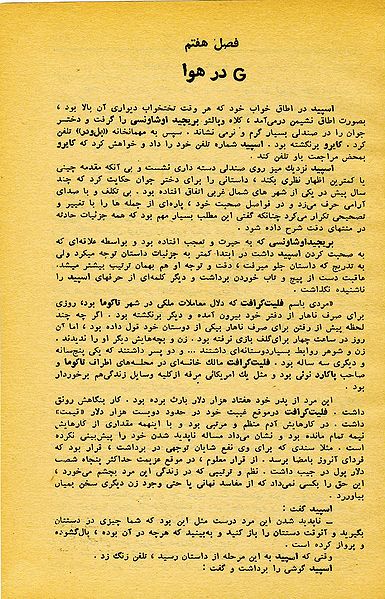 فصل هفتم
G در هوا
اسپید در اطاق خواب خود که هر وقت تختخواب دیواری آن بالا بود ،
بصورت اطاق نشیمن درمی‌آمد ، کلاه وپالتو بریجید اوشاونسی را گرفت و دختر
جوان را در صندلی بسیار گرم و نرمی نشاند . سپس به مهمانخانه «بل‌ودر» تلفن
کرد . کایرو برنگشته بود . اسپید شماره تلفن خود را داد و خواهش کرد که کایرو
بمحض مراجعت باو تلفن کند.
اسپید نزدیك میز روی صندلی دسته داری نشست و بی آنکه مقدمه چینی
یا کمترین اظهار نظری بکند ، داستانی را برای دختر جوان حکایت کرد که چند
سال پیش در یکی از شهر های شمال غربی اتفاق افتاده بود . بی تکلف و با صدای
آرامی حرف میزد و در فواصل صحبت خود ، پاره‌ای از جمله ها را با تغییر و
تصحیحی تکرار می‌کرد چنانکه گفتی این مطلب بسیار مهم بود که همه جزئیات حادثه
در منتهای دقت شرح داده شود .
بریجیداوشاونسی که به حیرت و تعجب افتاده بود و بواسطه علاقه‌ای که
به صحبت کردن اسپید داشت در ابتدا کمتر به جزئیات داستان توجه میکرد ولی
به تدریج که داستان جلو میرفت ، دقت و توجه او هم بهمان ترتیب بیشتر میشد.
عاقبت دست از پیچ و تاب خوردن برداشت و دیگر کلمه‌ای از حرفهای اسپید را
ناشنیده نگذاشت .
«مردی باسم فلیت‌گرافت که دلال معاملات ملکی در شهر تاکوما بود، روزی
برای صرف ناهار از دفتر خود بیرون آمده و دیگر برنگشته بود . اگر چه چند
لحظه پیش از رفتن برای صرف ناهار بیکی از دوستان خود قول داده بود ، اما آن
روز در ساعت چهار برای‌گلف بازی نرفته بود . زن و بچه‌هایش دیگر او را ندیدند .
زن و شوهر روابط بسیاردوستانه‌ای داشتند ... و دو پسر داشتند که یکی پنج‌ساله
و دیگری سه ساله بود . فلیت‌گرافت مالك خانه‌ای در محله‌های اطراف تاکوما و
صاحب پاکارد نوئی بود و مثل یك امریکائی مرفه ازکلیه وسایل زندگی‌هم برخوردار
بود .
این مرد از پدر خود هفتاد هزار دلار بارث برده بود . کار بنگاهش رونق
داشت . فلیت‌گرافت درموقع غیبت خود در حدود دویست هزار دلار «قیمت»
داشت . در کارهایش آدم منظم و مرتبی بود و با اینهمه مقداری از کارهایش
نیمه تمام مانده بود و نشان می‌داد مساله ناپدید شدن خود را پیش‌بینی نکرده
است . مثلا سندی که برای وی نفع شایان توجهی در برداشت ، قرار بود که
فردای آنروز بامضا برسد . از قرار معلوم ، در موقع عزیمت حداکثر پنجاه شصت
دلار پول در جیب داشت . نظم و ترتیبی که در زندگی این مرد بچشم می‌خورد ،
این حق را بکسی نمی‌داد که از مفاسد نهانی یا حتی وجود زن دیگری سخن بمیان
بیاورد .
اسپید گفت :
ـ ناپدید شدن این مرد درست مثل این بود که شما چیزی در دستتان
بگیرید و آنوقت دستتان را باز کنید و به‌بینید که هرچه در آن بوده ، بال‌گشوده
و پرواز کرده است .
وقتی که اسپید به این مرحله از داستان رسید ، تلفن زنگ زد .
اسپید گوشی را برداشت و گفت :